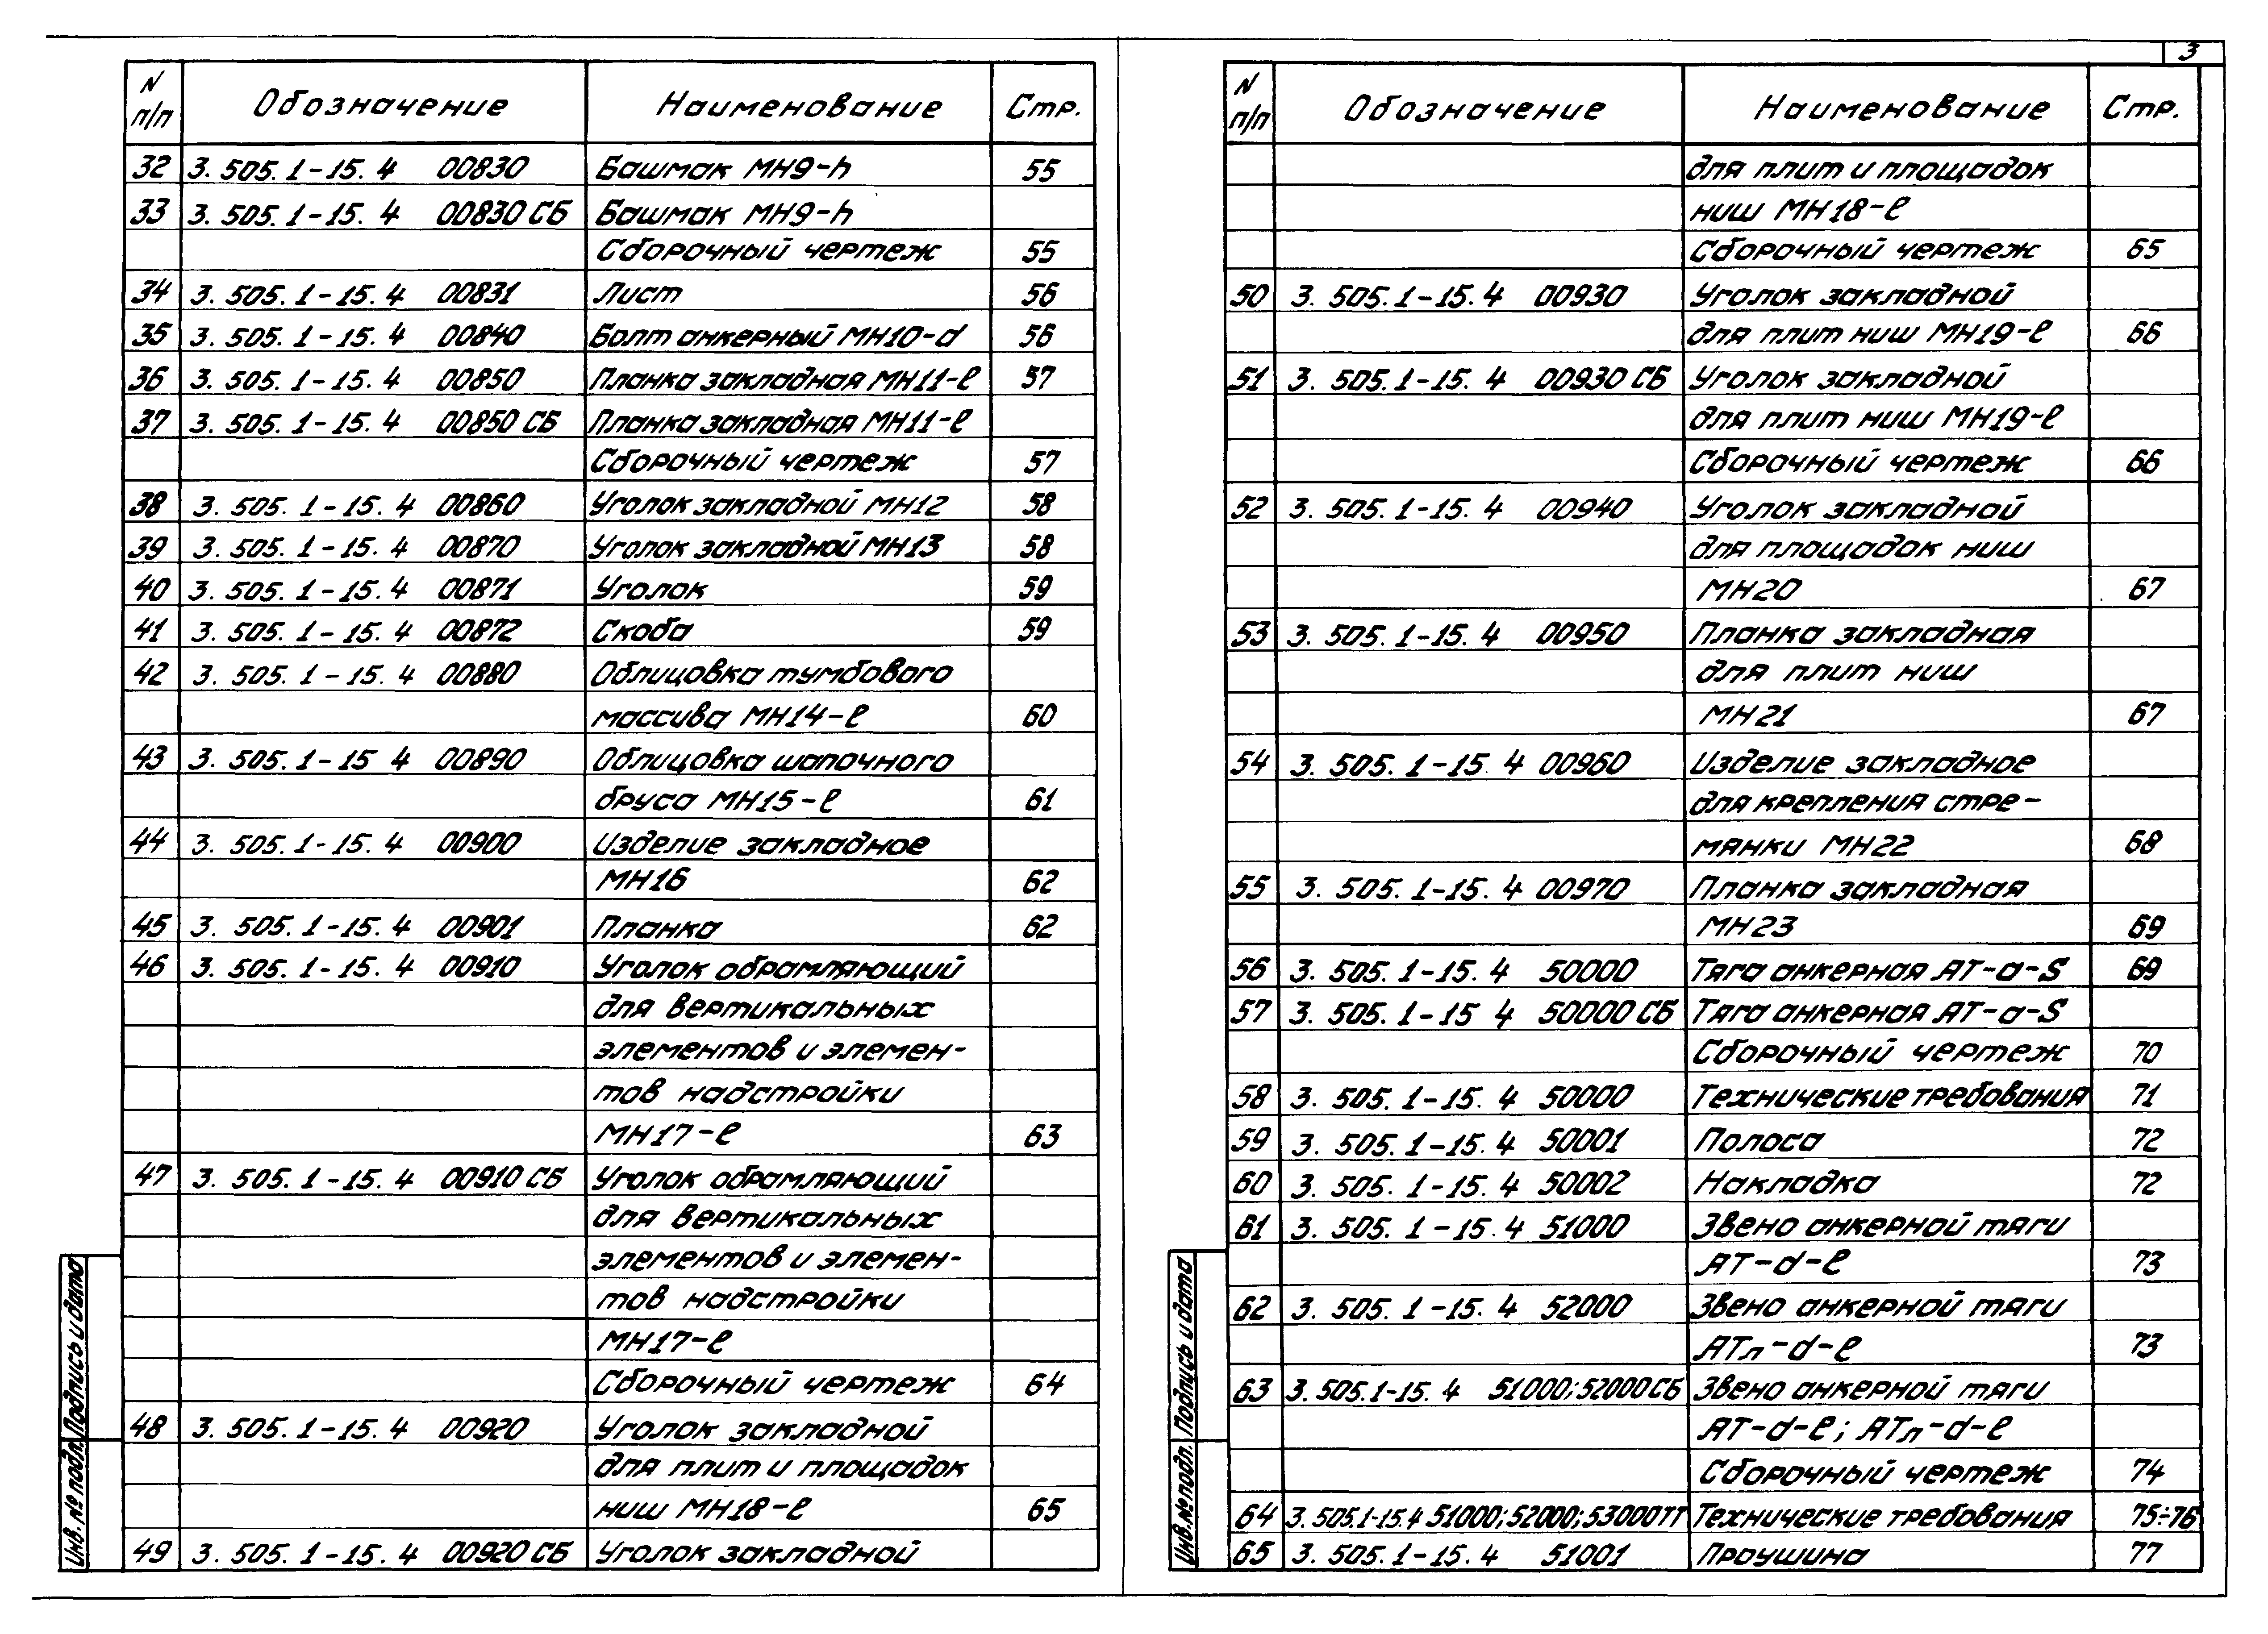 3
N п/п Обозначение Наименование Стр.
32 3.505.1-15.4 00830 Башмак МН9-h 55
33 3.505.1-15.4 00830 СБ Башмак МН9-h
Сборочный чертеж 55
34 3.505.1-15.4 00831 Лист 56
35 3.505.1-15.4 00840 Болт анкерный МН10-d 56
36 3.505.1-15.4 00850 Планка закладная МН11-ℓ 57
37 3.505.1-15.4 00850 СБ Планка закладная МН11-ℓ
Сборочный чертеж 57
38 3.505.1-15.4 00860 Уголок закладной МН12 58
39 3.505.1-15.4 00870 Уголок закладной МН13 58
40 3.505.1-15.4 00871 Уголок 59
41 3.505.1-15.4 00872 Скоба 59
42 3.505.1-15.4 00880 Облицовка тумбового
массива МН14-ℓ 60
43 3.505.1-15 4 00890 Облицовка шапочного
бруса МН15-ℓ 61
44 3.505.1-15.4 00900 Изделие закладное
МН16 62
45 3.505.1-15.4 00901 Планка 62
46 3.505.1-15.4 00910 Уголок обрамляющий
для вертикальных
элементов и элемен-
тов надстройки
МН17-ℓ 63
47 3.505.1-15.4 00910 СБ Уголок обрамляющий
для вертикальных
элементов и элемен-
тов надстройки
МН17-ℓ
Сборочный чертеж 64
48 3.505.1-15.4 00920 Уголок закладной
для плит и площадок
ниш МН18-ℓ 65
49 3.505.1-15.4 00920 СБ Уголок закладной
Инв. № подл. Подпись и дата
N п/п Обозначение Наименование Стр.
для плит и площадок
ниш МН18-ℓ
Сборочный чертеж 65
50 3.505.1-15.4 00930 Уголок закладной
для плит ниш МН19-ℓ 66
51 3.505.1-15.4 00930 СБ Уголок закладной
для плит ниш МН19-ℓ
Сборочный чертеж 66
52 3.505.1-15.4 00940 Уголок закладной
для площадок ниш
МН20 67
53 3.505.1-15.4 00950 Планка закладная
для плит ниш
МН21 67
54 3.505.1-15.4 00960 Изделие закладное
для крепления стре-
мянки МН22 68
55 3.505.1-15.4 00970 Планка закладная
МН23 69
56 3.505.1-15.4 50000 Тяга анкерная АТ-а-S 69
57 3.505.1-15 4 50000 СБ Тяга анкерная АТ-а-S
Сборочный чертеж 70
58 3.505.1-15.4 50000 Технические требования 71
59 3.505.1-15.4 50001 Полоса 72
60 3.505.1-15.4 50002 Накладка 72
61 3.505.1-15.4 51000 Звено анкерной тяги
АТ-d-ℓ 73
62 3.505.1-15.4 52000 Звено анкерной тяги
АТл-d-ℓ 73
63 3.505.1-15.4 51000; 52000 СБ Звено анкерной тяги
АТ-d-ℓ; АТл-d-ℓ
Сборочный чертеж 74
64 3.505.1-15.4 51000; 52000; 53000ТТ Технические требования 75÷76
65 3.505.1-15.4 51001 Проушина 77
Инв. № подл. Подпись и дата